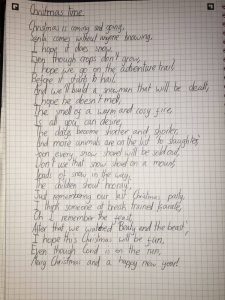 Christmas time.
Christmas is coming and going,
Santa comes without anyone knowing.
I hope it does snow,
Even though crops don't grow,
I hope we go on the adventure trail,
Before it starts to hail.
And we'll build a snowman that will be deadly,
I hope he doesn't melt,
The smell of a warm and cosy fire,
Is all you can desire,
The days become shorter and shorter,
And more animals are on the list to slaughter,
Soon every snow shovel will be sold out,
Don't use that snow shovel on a mount,
loads of snow in the way,
The children shout 'hooray',
Just remembering our last Christmas party,
I think someone at breath trained karate,
Oh I remember the feast,
After that we watched 'Beauty and the beast',
I hope this Christmas will be fun,
Even though Covid is on the run,
Merry Christmas and a happy new year!